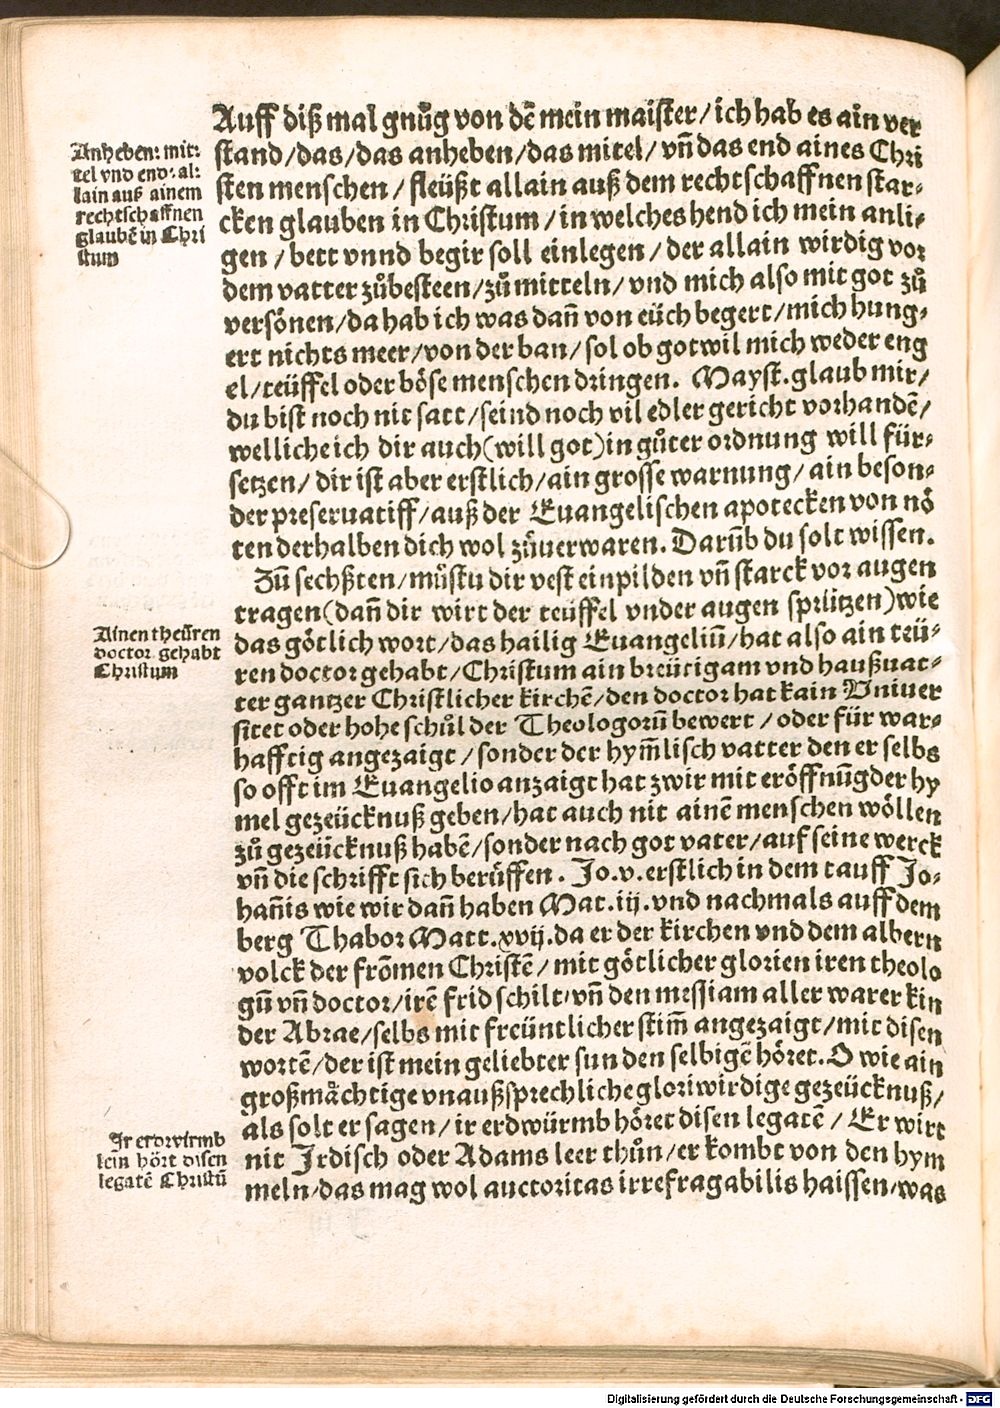 Auff diß mal gnůg von dē mein maister/ich hab es ain ver
stand/das/das anheben/das mitel/vn̄ das end aines Chri
sten menschen/fleüßt allain auß dem rechtschaffnen star⸗
cken glauben in Christum/in welches hend ich mein anli⸗
gen/bett vnnd begir soll einlegen/der allain wirdig vor
dem vatter zůbesteen/zů mitteln/vnd mich also mit got zů
versönen/da hab ich was dan̄ von eüch begert/mich hung⸗
ert nichts meer/von der ban/sol ob got wil mich weder eng
el/teüffel oder böse menschen dringen. Mayst. glaub mir/
du bist noch nit satt/seind noch vil edler gericht vorhandē/
welliche ich dir auch(will got)in gůter ordnung will für⸗
setzen/dir ist aber erstlich/ain grosse warnung/ain beson⸗
der preseruatiff/auß der Euangelischen apotecken von nö
ten derhalben dich wol zůuerwaren. Darūb du solt wissen.
Zů sechßten/můstu dir vest einpilden vn̄ starck vor augen
tragen(dan̄ dir wirt der teüffel vnder augen sprützen)wie
das götlich wort/das hailig Euangeliū/hat also ain teü⸗
ren doctor gehabt/Christum ain breütigam vnd haußuat⸗
ter gantzer Christlicher kirchē/den doctor hat kain Vniuer
sitet oder hohe schůl der Theologorū bewert/oder für war⸗
hafftig angezaigt/sonder der hym̄lisch vatter den er selbs
so offt im Euangelio anzaigt hat zwir mit eröffnūg der hy
mel gezeücknuß geben/hat auch nit ainē menschen wöllen
zů gezeücknuß habē/sonder nach got vater/auf seine werck
vn̄ die schrifft sich berůffen. Jo.v. erstlich in dem tauff Jo⸗
han̄is wie wir dan̄ haben Mat.iij. vnd nachmals auff dem
berg Thabor Matt.xvij. da er der kirchen vnd dem albern
volck der fro̅men Christē/mit götlicher glorien iren theolo
gū vn̄ doctor/irē frid schilt/vn̄ den messiam aller warer kin
der Abrae/selbs mit freüntlicher stim̄ angezaigt/mit disen
wortē/der ist mein geliebter sun den selbigē höret. O wie ain
großmächtige vnaußsprechliche gloriwirdige gezeücknuß/
als solt er sagen/ir erdwürmb höret disen legatē/Er wirt
nit Jrdisch oder Adams leer thůn/er kombt von den hym
meln/das mag wol auctoritas irrefragabilis haissen/was
Anheben: mit:
tel vnd end: al:
lain auß ainem
rechtschaffnen
glaubē in Chri
stum
Ainen theüren
doctor gehabt
Christum
Jr erdwirmb
lein hört disen
legatē Christū
Digitalisierung gefördert durch die Deutsche Forschungsgemeinschaft - DFG